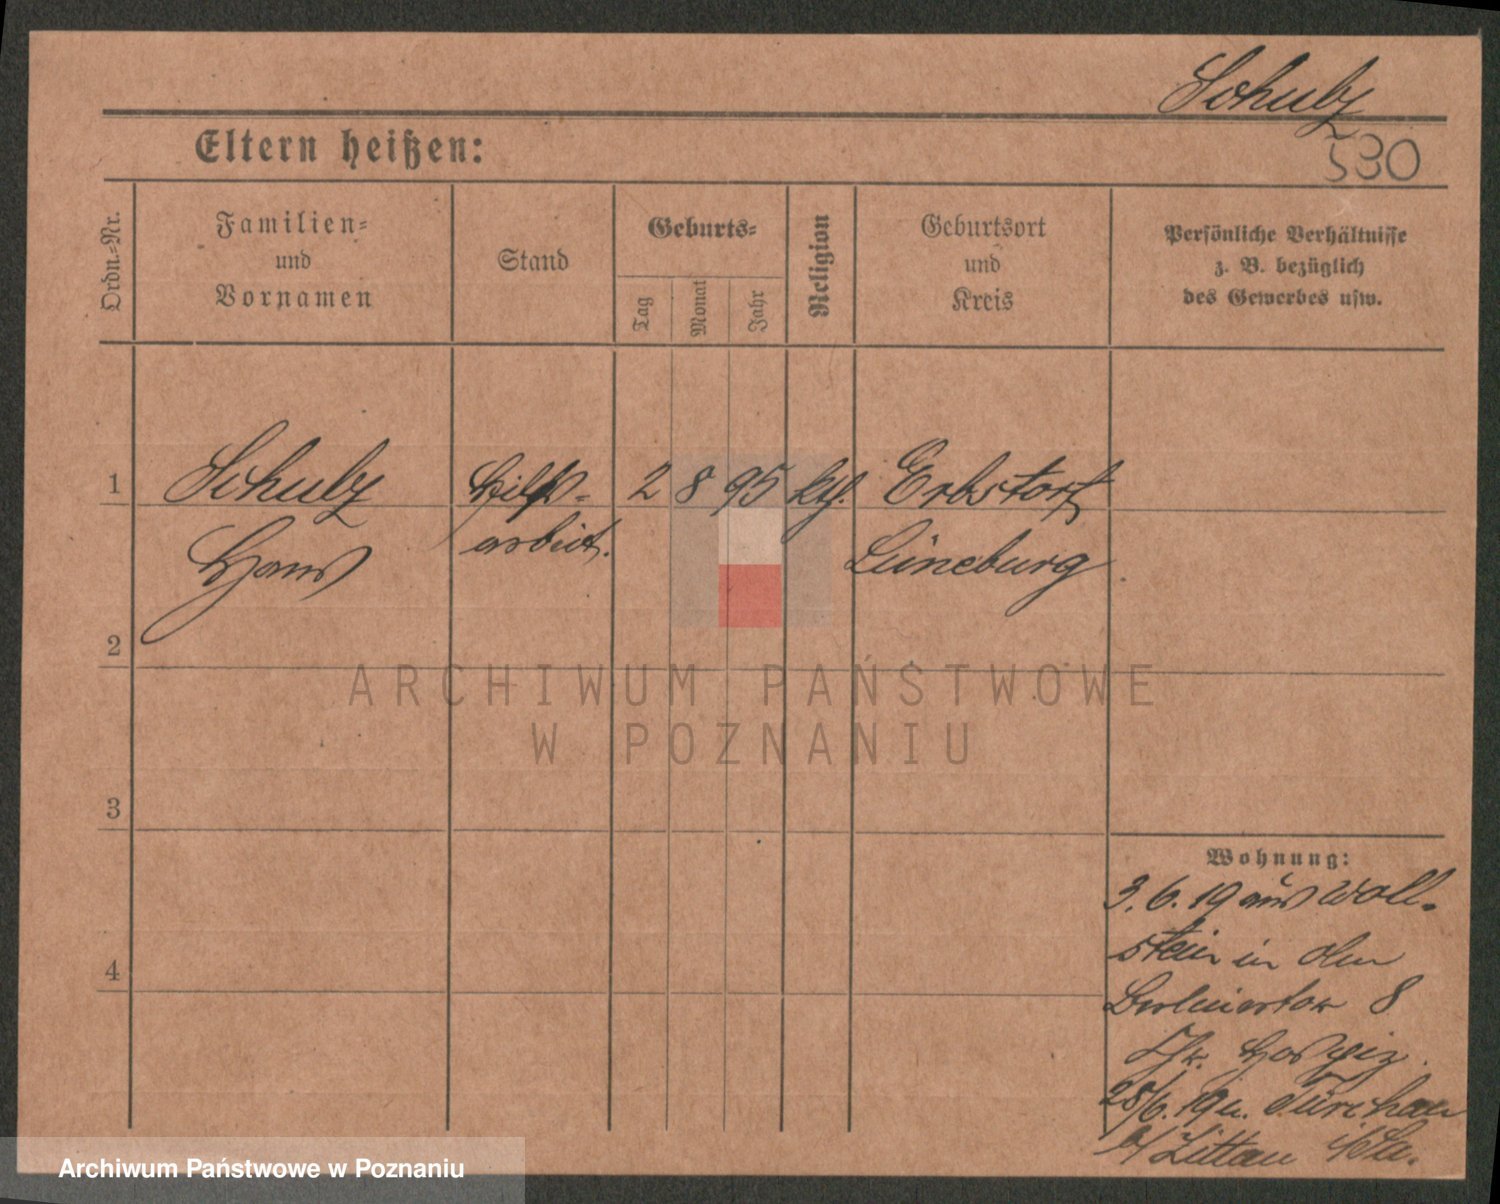 Schulz
530
Eltern heißen:
Ordn.-Nr.
Familien-
und
Vornamen
Stand
Geburts-
Tag
Monat
Jahr
Religion
Geburtsort
und
Kreis
Persönliche Verhältnisse
z. B. bezüglich
des Gewerbes usw.
1
Schulz
Hans
Hilfs-
arbeit.
2
8
95
Erbstorf
Lüneburg
2
3
4
ARCHIWUM PAŃSTWOWE
W POZNANIU
Wohnung:
3. 6. 19 aus Woll-
stein in
8
Hospiz.
28/6. 19 n. Türchau
b/ Zittau
Archiwum Państwowe w Poznaniu